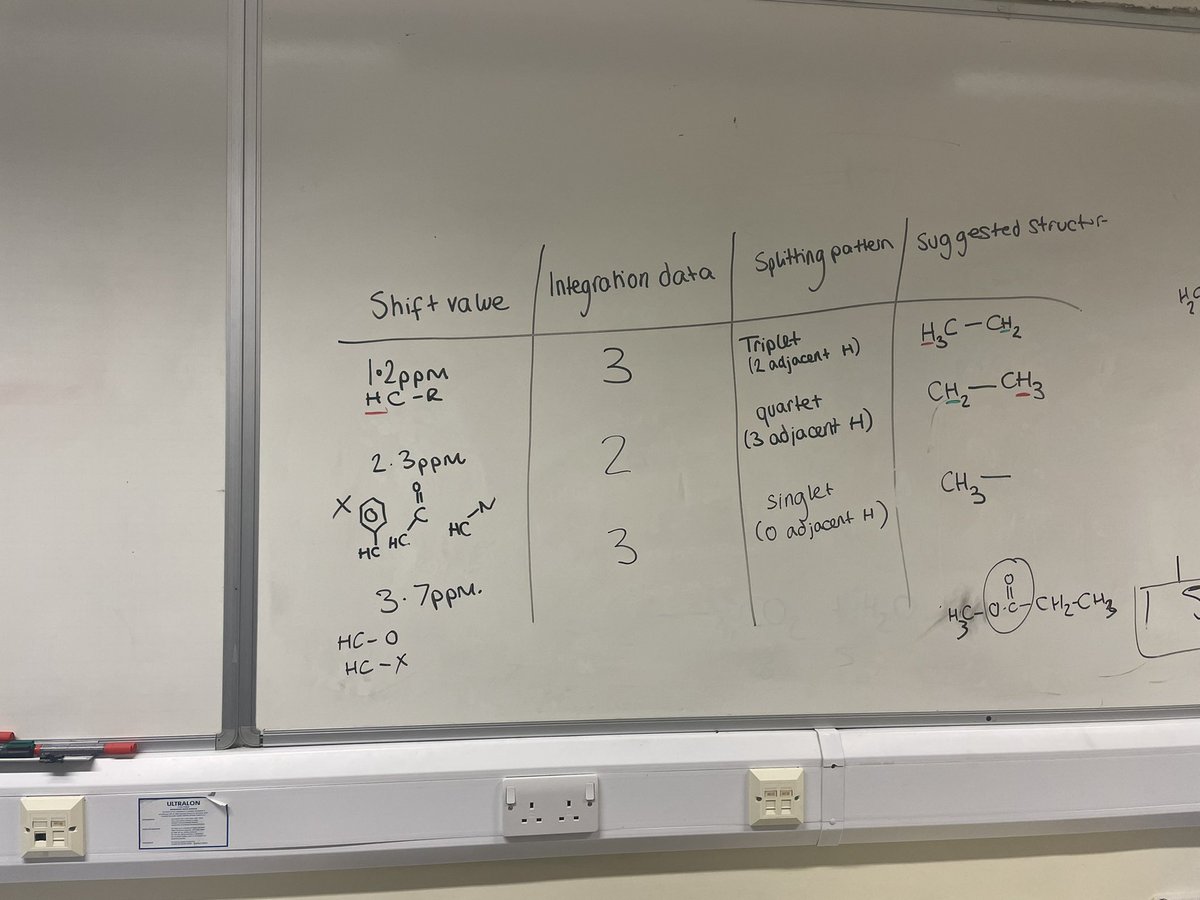 Shift value
Integration data
Splitting pattern
Suggested structur
1.2ppm
HC-R
3
Triplet
(2 adjacent H)
H3C-CH2
2.3ppm
X
HC
O
C
HC
HC
N
2
quartet
(3 adjacent H)
CH2-CH3
3.7ppm.
HC-O
HC-X
3
singlet
(0 adjacent H)
CH3-
O
H3C-O-C-CH2-CH3
H2
ULTRALON